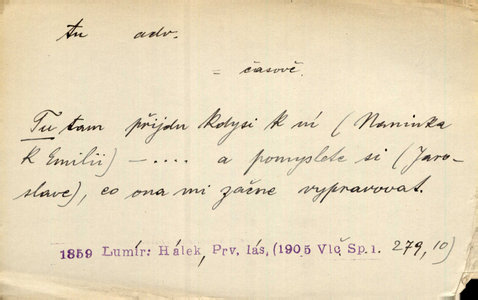 tu adv.
= časově.
Tu tam přijdu kdysi k ní (Naninka
k Emilii) — .... a pomyslete si (Jaro-
slave), co ona mi začne vypravovat.
1859 Lumír: Hálek, Prv. lás. (1905 Vlč Sp. 1. 279,10)